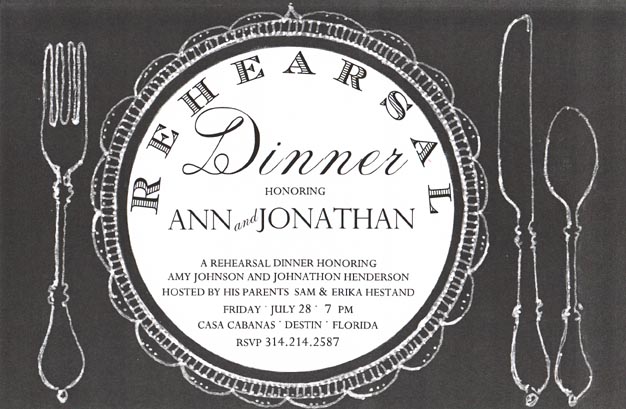 REHEARSAL
Dinner
HONORING
ANN and JONATHAN
A REHEARSAL DINNER HONORING
AMY JOHNSON AND JOHNATHON HENDERSON
HOSTED BY HIS PARENTS SAM & ERIKA HESTAND
FRIDAY · JULY 28 · 7 PM
CASA CABANAS · DESTIN · FLORIDA
RSVP 314.214.2587